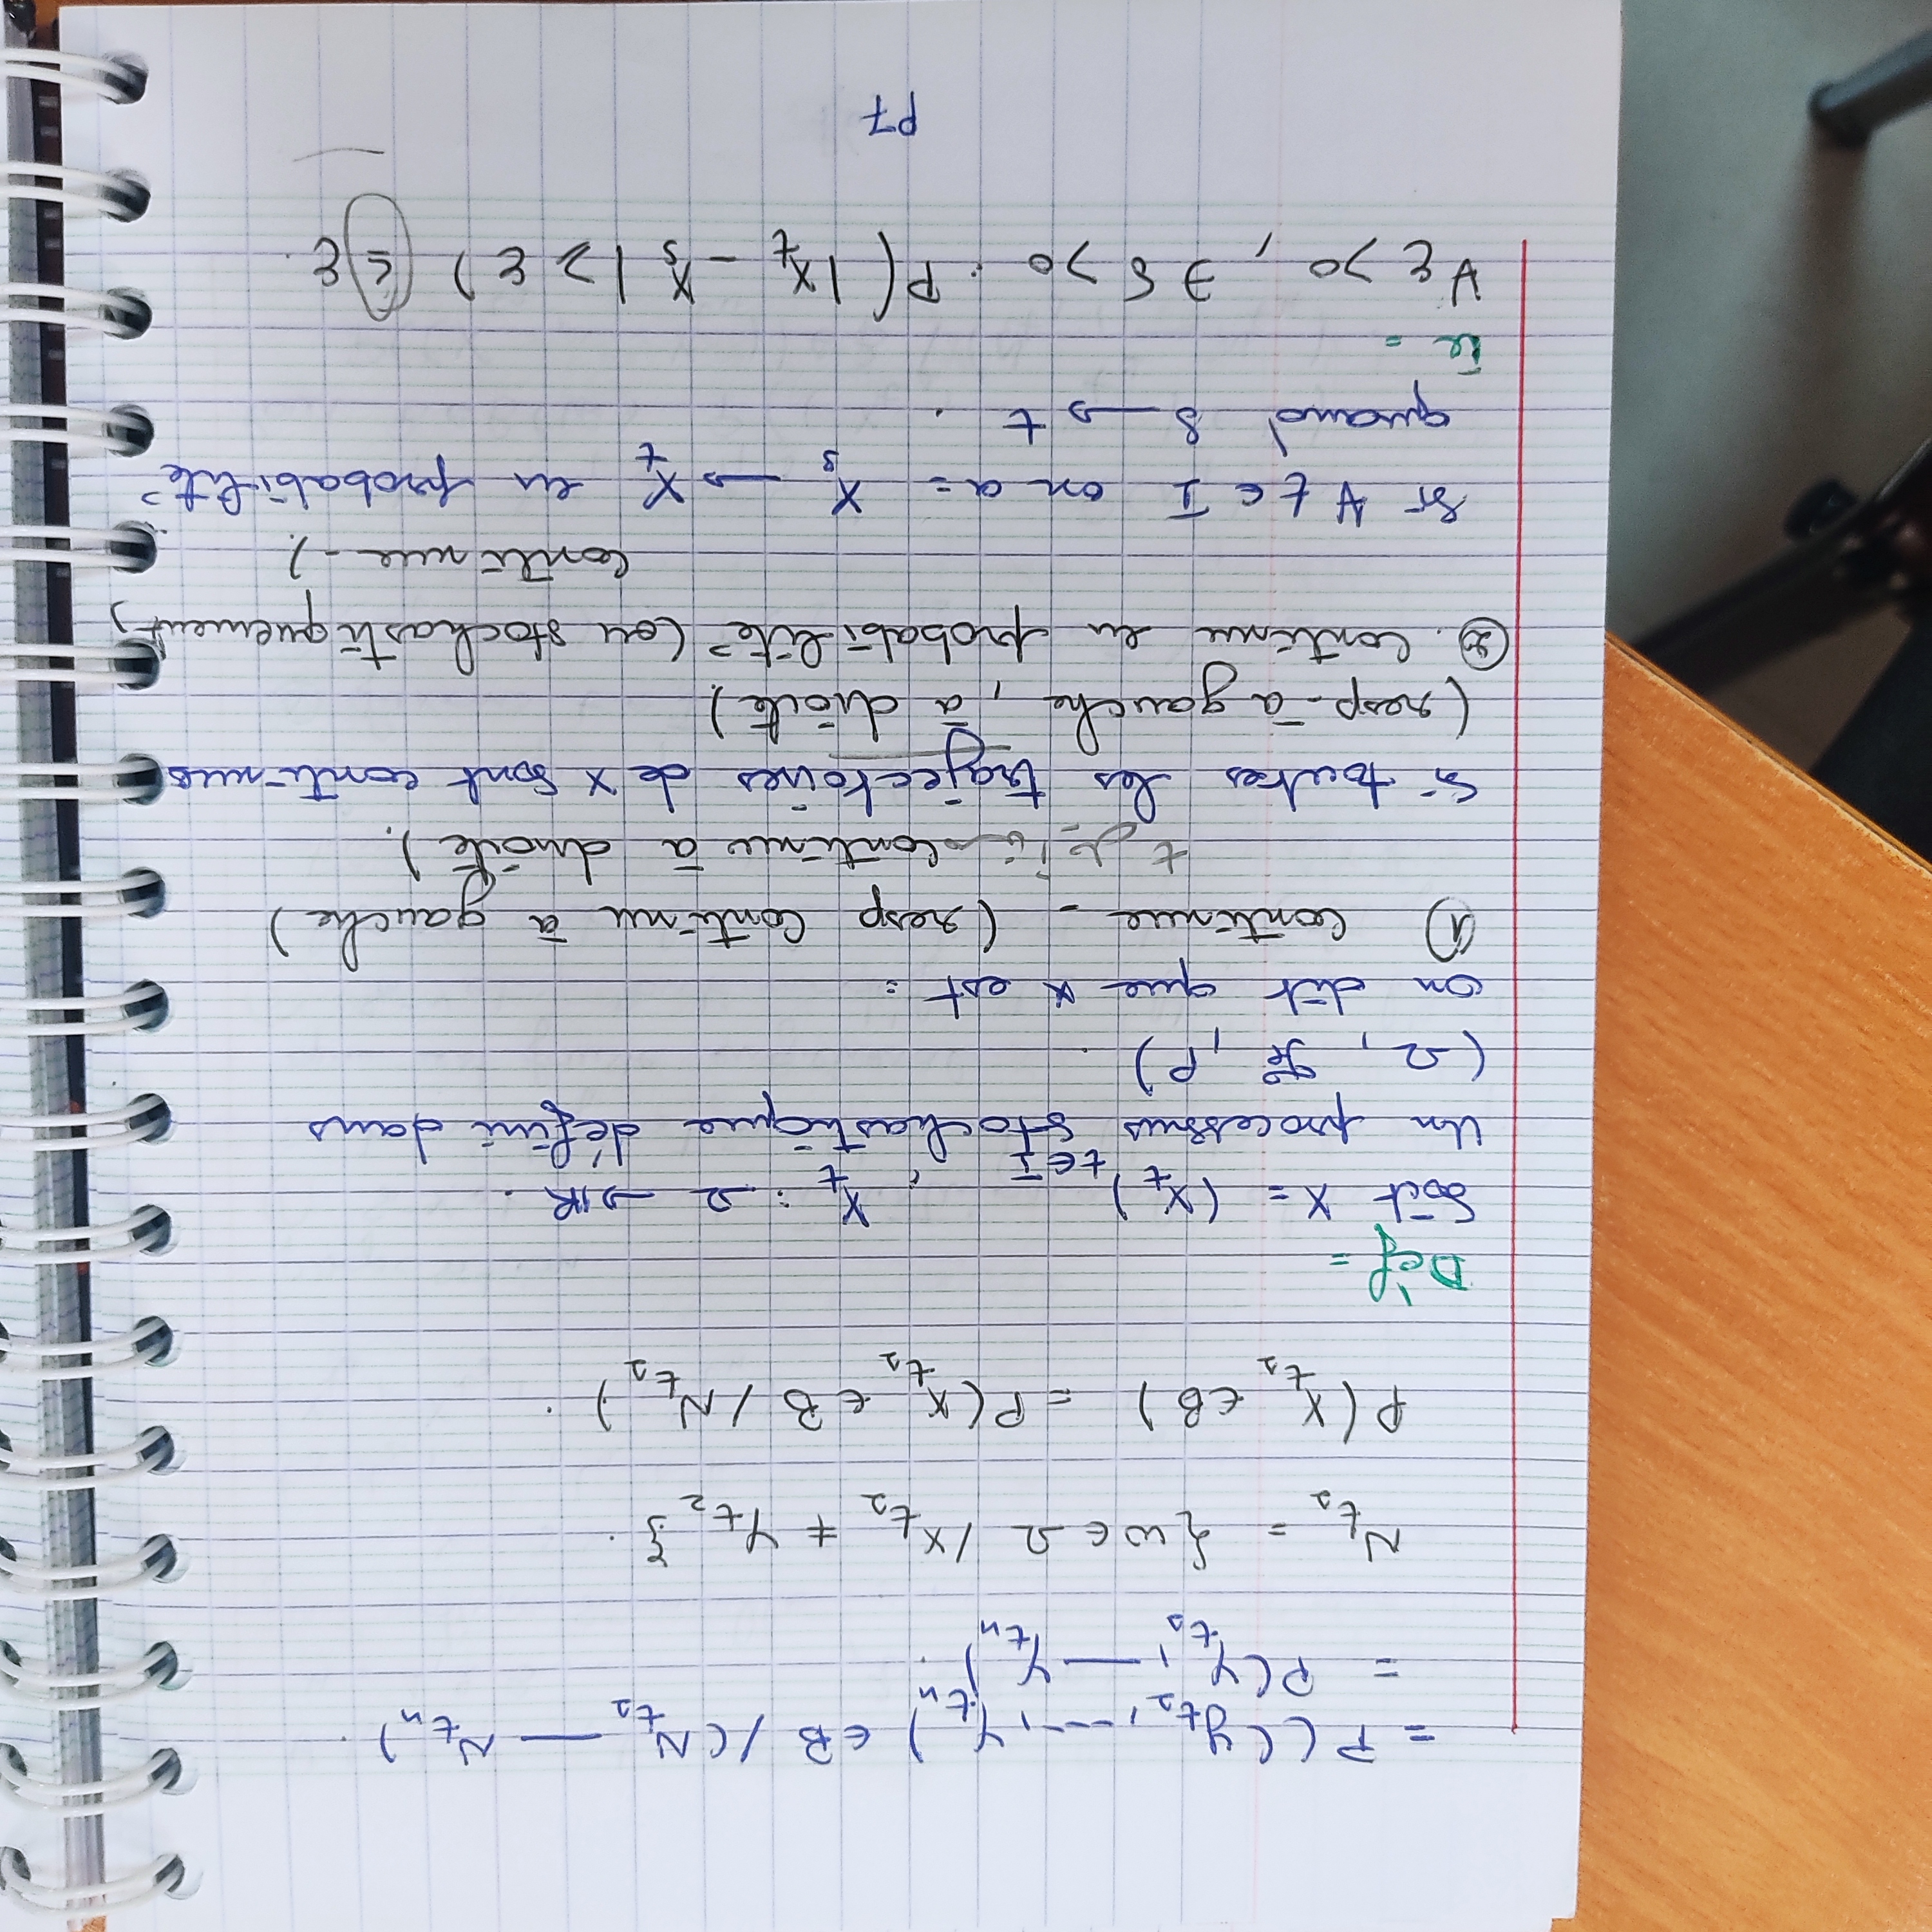 = P((y_{t_1}, ---, y_{t_n}) ∈ B / (N_{t_1} — N_{t_n}).
= P(y_{t_1}, — y_{t_n}).
N_{t_1} = {ω ∈ Ω / X_{t_1} ≠ Y_{t_2}}.
P(X_{t_1} ∈ B) = P(X_{t_1} ∈ B / N_{t_1}).
Dèf =
Soit X = (X_t)_{t∈I} , X_t : Ω → ℝ.
Un processus stochastique défini dans
(Ω, ℱ, P).
on dit que X est :
① Continue - (resp Continu à gauche)
continu à droite).
Si toutes les trajectoires de X sont continus
(resp - à gauche, à droite)
②. Continu en probabilité (ou stochastiquement,
continue -).
Si ∀ t ∈ I on a = X_s → X_t en probabilité
quand s → t .
Ie =
∀ε > 0, ∃ δ > 0 . P(|X_t - X_s| ≥ ε) ≤ ε.
P7